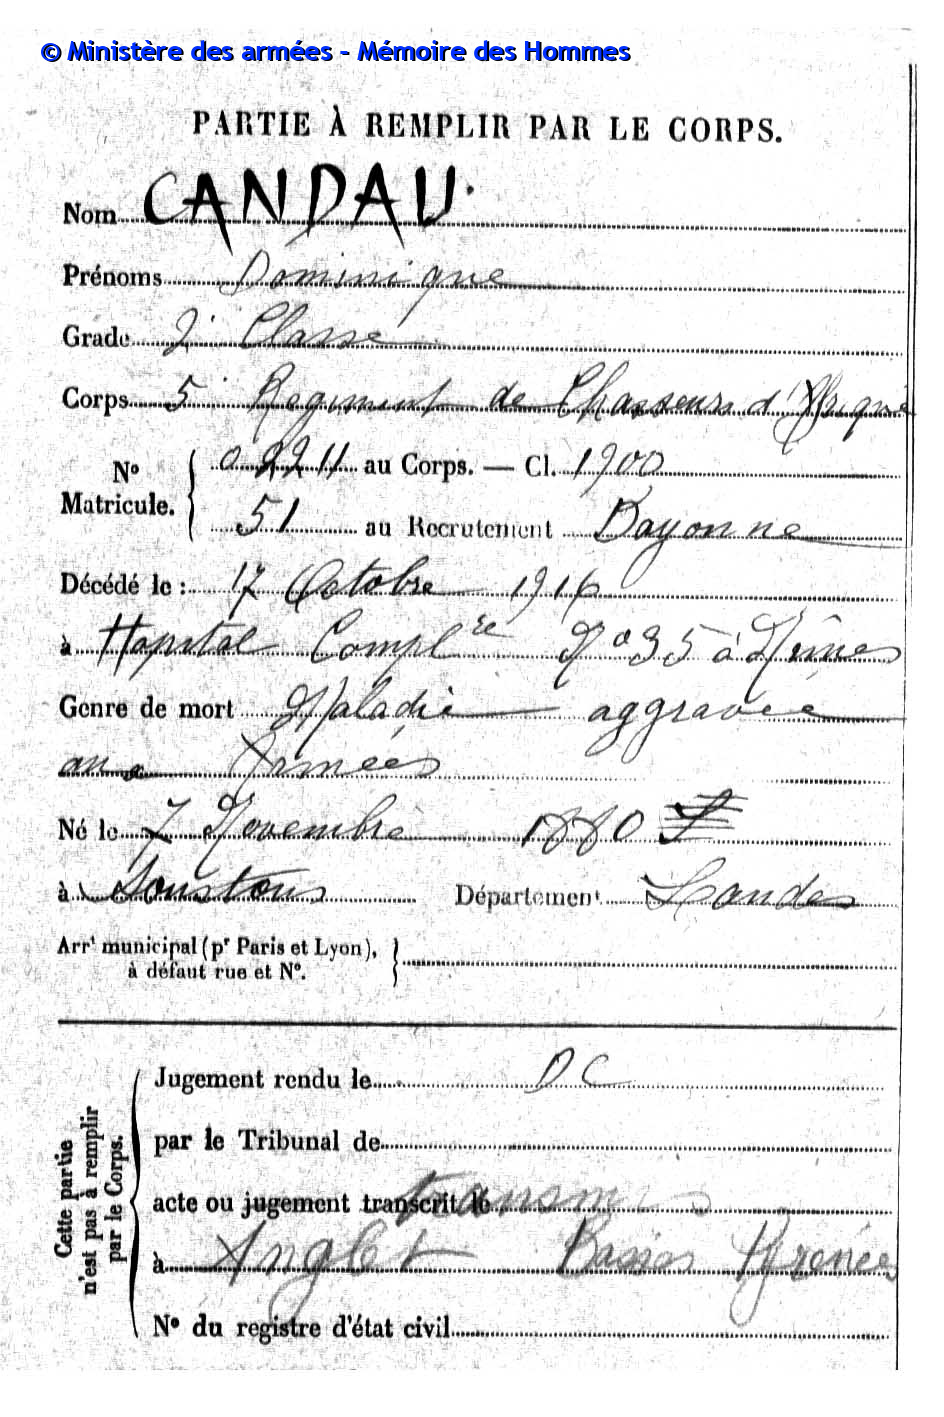 © Ministère des armées - Mémoire des Hommes
PARTIE À REMPLIR PAR LE CORPS.
Nom CANDAU
Prénoms Dominique
Grade 2e Classe
Corps 5e Regiment de Chasseurs d'Afrique
No Matricule. { 02211 au Corps. — Cl. 1900
51 au Recrutement Bayonne
Décédé le : 17 Octobre 1916
à Hopital Complre No 35 à Nîmes
Genre de mort Maladie aggravée
aux Armées
Né le 7 Novembre 1880
à Soustons Département Landes
Arrt municipal (pr Paris et Lyon),
à défaut rue et No.
Cette partie n'est pas à remplir par le Corps.
Jugement rendu le DC
par le Tribunal de
acte ou jugement transcrit le transmis
à Anglet Basses Pyrénées
No du registre d'état civil